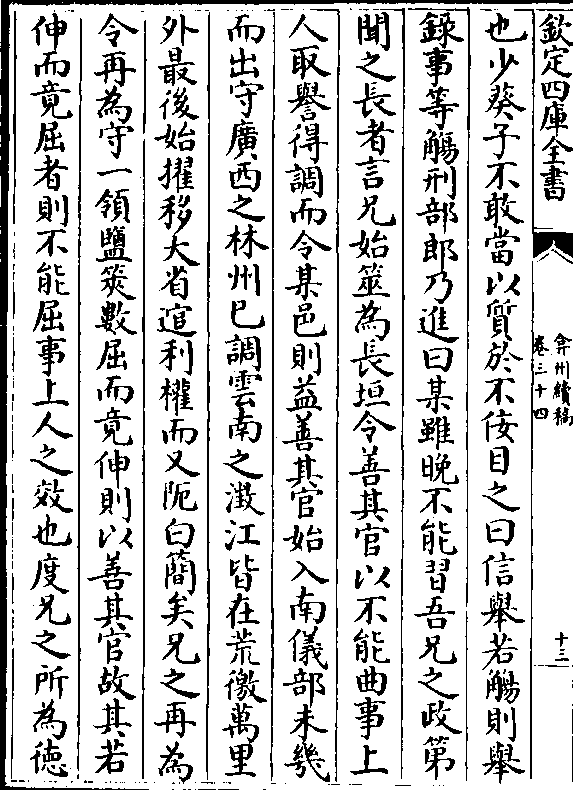 欽定四庫全書
弇州續稿
卷三十四
十三
也少葵子不敢當以質於不佞目之曰信舉若觴則舉
錄事等觴刑部郎乃進曰某雖晚不能習吾兄之政第
聞之長者言兄始筮為長垣令善其官以不能曲事上
人取譽得調而令某邑則益善其官始入南儀部未幾
而出守廣西之林州已調雲南之澂江皆在荒徼萬里
外最後始擢移大省逭利權而又阨白簡矣兄之再為
令再為守一領鹽筴數屈而竟伸則以善其官故其若
伸而竟屈者則不能屈事上人之效也度兄之所為徳